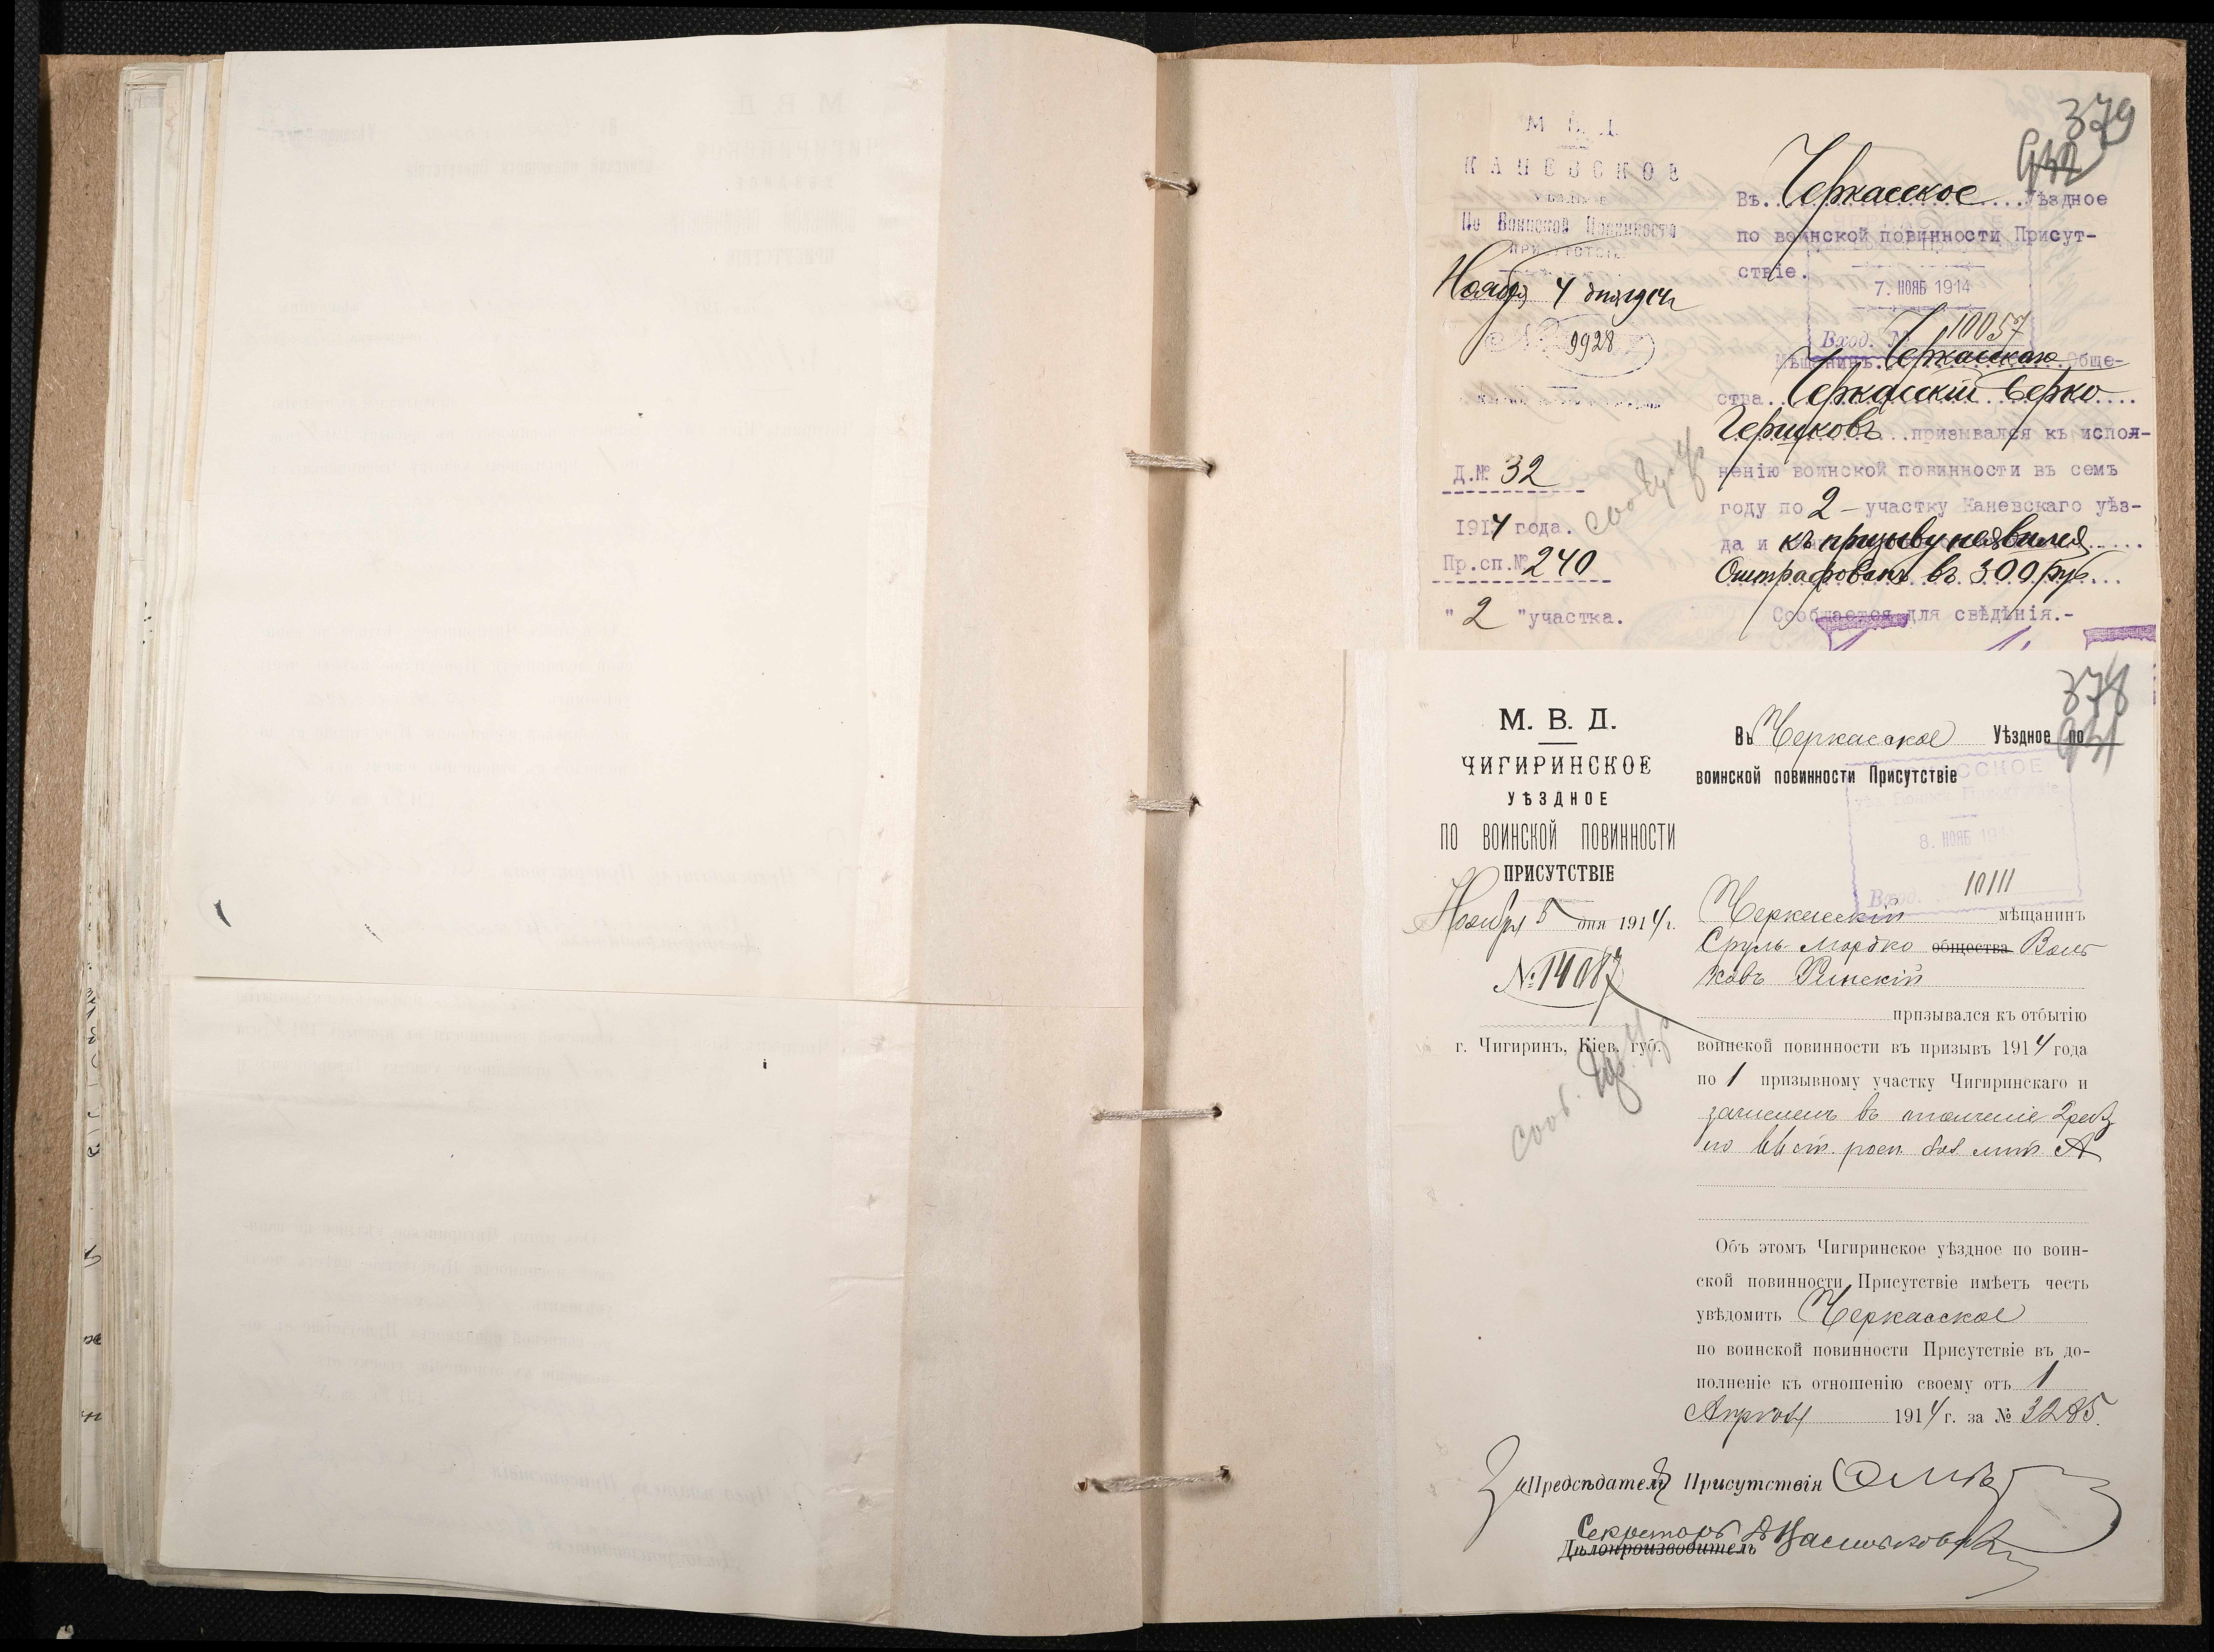 379
942
М. В. Д.
КАНЕВСКОЕ
УѢЗДНОЕ
По Воинской Повинности
ПРИСУТСТВІЕ
Ноября 4 дня 1914
№ 9928
Д.№ 32
1914 года.
Пр.сп.№ 240
" 2 " участка.
Въ Черкасское Уѣздное
по воинской повинности Присут-
ствіе.
7. НОЯБ 1914
Вход. № 10057
Мѣщанинъ Черкасскаго Обще-
ства Черкасскій Берко
Гершковъ призывался къ испол-
ненію воинской повинности въ семъ
году по 2 - участку Каневскаго уѣз-
да и къ призыву не явился
Оштрафованъ въ 300 руб.
Сообщается для свѣдѣнія.-
378
941
М. В. Д.
ЧИГИРИНСКОЕ
УѢЗДНОЕ
ПО ВОИНСКОЙ ПОВИННОСТИ
ПРИСУТСТВІЕ
Ноября 5 дня 1914 г.
№ 14087
г. Чигиринъ, Кіев. губ.
Въ Черкасское Уѣздное по
воинской повинности Присутствіе
8. НОЯБ 191
Вход. 10111
Черкасскій мѣщанинъ
Сруль Мордко общества Воль
ковъ
призывался къ отбытію
воинской повинности въ призывъ 1914 года
по 1 призывному участку Чигиринскаго и
зачисленъ въ ополченіе 2 разр
по ст. росп. бол. лит. А
Объ этомъ Чигиринское уѣздное по воин-
ской повинности Присутствіе имѣетъ честь
увѣдомить Черкасское
по воинской повинности Присутствіе въ до-
полненіе къ отношенію своему отъ 1
Апрѣля 1914 г. за № 3285.
За Предсѣдателя Присутствія
Секретарь
Дѣлопроизводитель